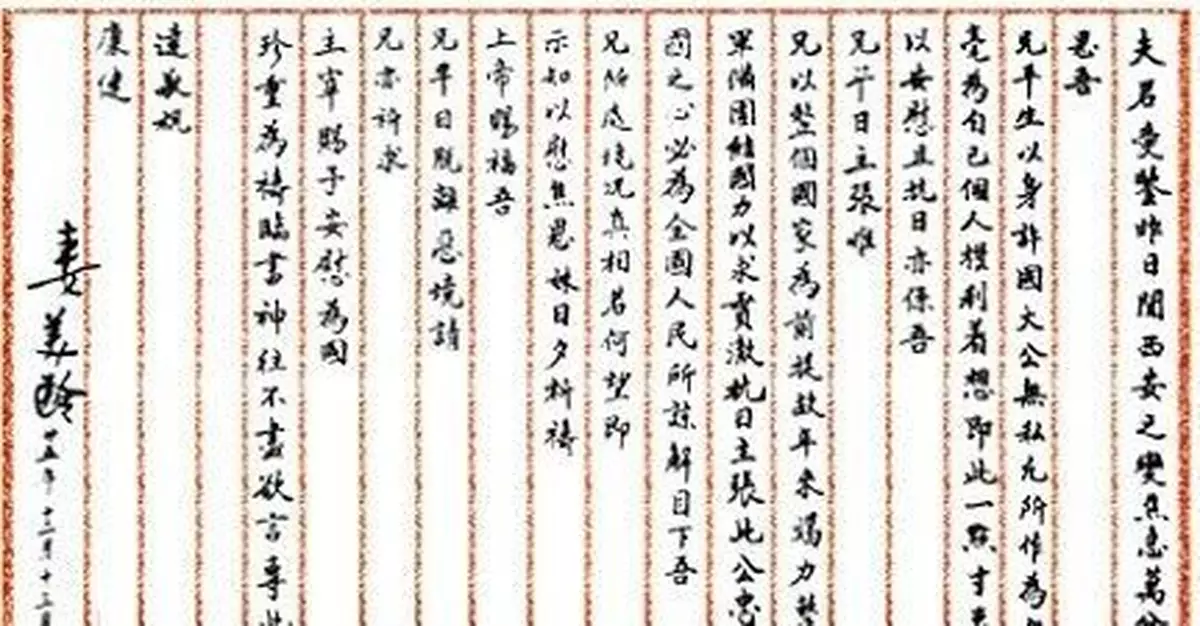 夫君愛鑒昨日聞西安之變焦急萬
思吾
兄平生以身許國大公無私凡所作為
毫為自己個人權利着想即此一點寸衷
以安慰且抗日亦係吾
兄平日主張惟
兄以整個國家為前提故年來竭力整
軍備團結國力以求貫澈抗日主張此公忠
國之心必為全國人民所諒解目下吾
兄所處境况真相若何望即
示知以慰焦思妹日夕祈禱
上帝賜福吾
兄早日脫離惡境請
兄亦許求
主宰賜予安慰為國
珍重為禱臨書神往不盡欲言專此
達敬祝
康健
妻美齡廿五年十二月十三日